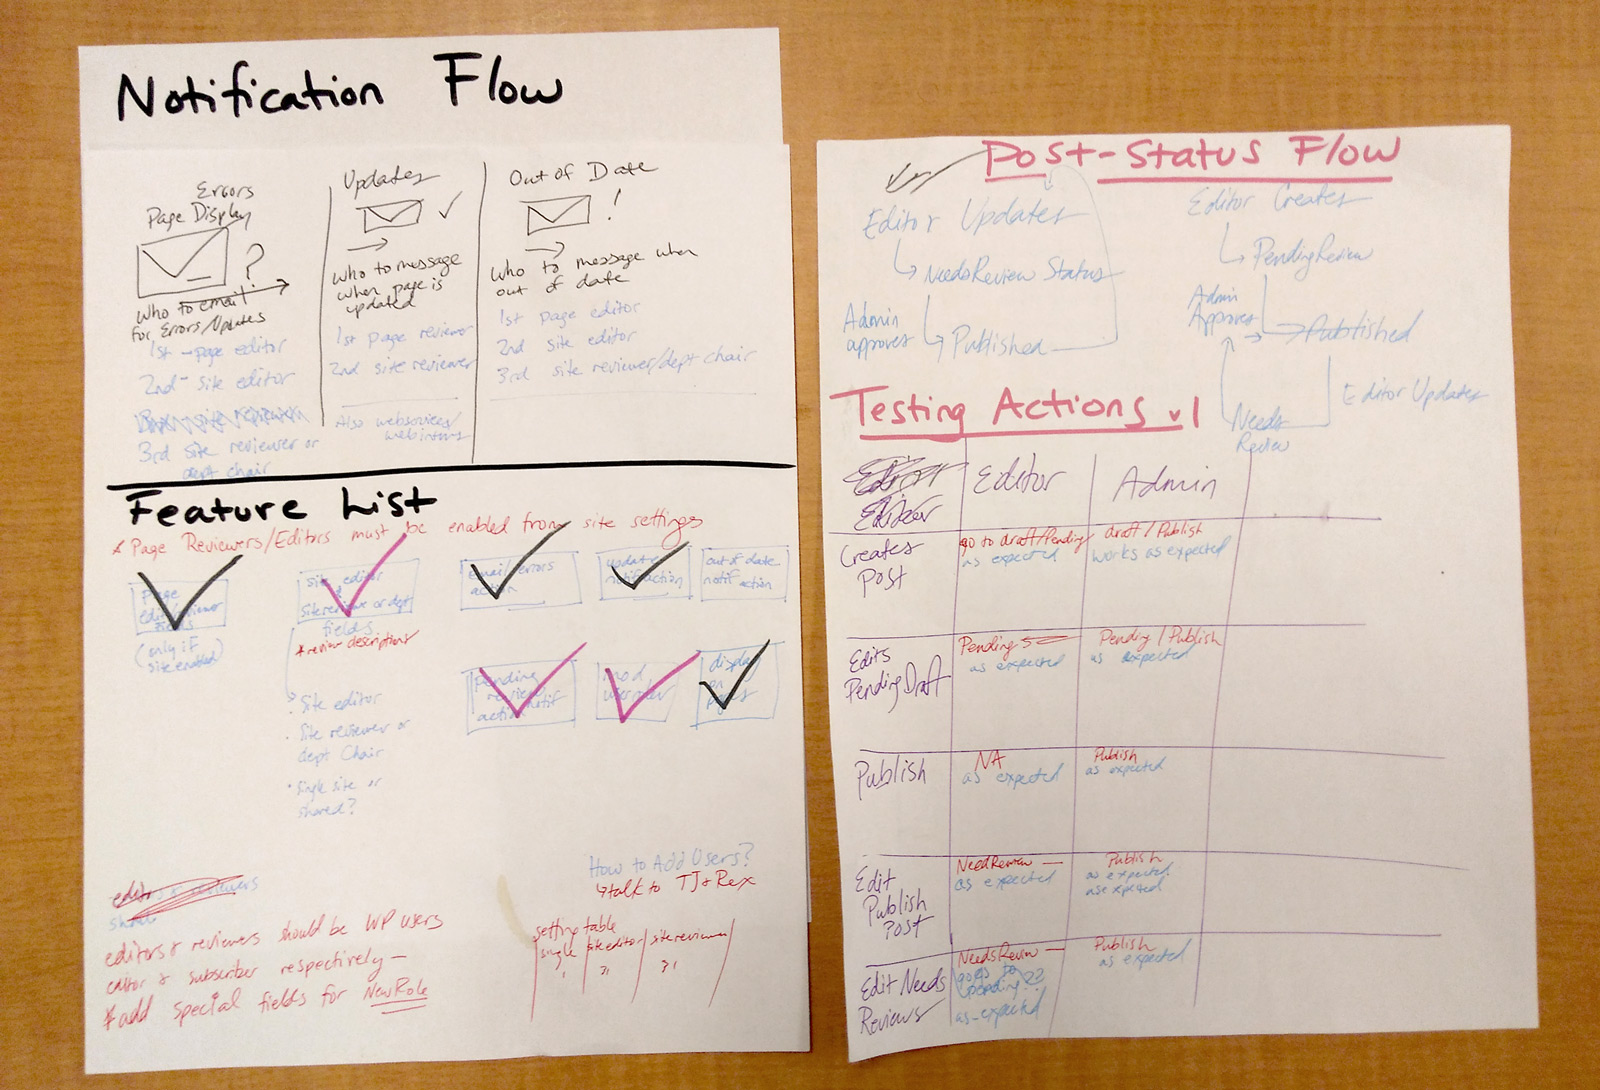 Notification Flow
Errors
Page Display
?
Who to email?
for Errors/Updates
1st - page editor
2nd - site editor
3rd site reviewer or
dept chair
Updates
Who to message
when page is
updated
1st page reviewer
2nd site reviewer
Also webservices/
Out of Date
!
Who to message when
out of date
1st page editor
2nd site editor
3rd site reviewer/dept chair
Feature List
* Page Reviewers/Editors must be enabled from site settings
page
editor/reviewer
fields
(only if
site enabled)
site editor
site reviewer or dept
fields
* review descriptions
· Site editor
· Site reviewer or
dept Chair
· Single site or
shared?
email/errors
action
update
notif action
out of date
notif action
pending
review
action notif
mod
display
on
pages
How to Add Users?
↳ talk to TJ + Rex
setting table
single | site editor | site reviewer
editors + reviewers
editors + reviewers should be WP users
editor + subscriber respectively -
* add special fields for New Role
Post-Status Flow
Editor Updates
NeedsReview Status
Admin
approves
Published
Editor Creates
PendingReview
Admin
Approves
Published
Editor Updates
Needs
Review
Testing Actions v1
Editor
Admin
Creates
Post
go to draft/Pending
as expected
draft / Publish
works as expected
Edits
Pending Draft
Pending
as expected
Pending / Publish
as expected
Publish
NA
as expected
Publish
as expected
Edit
Publish
Post
NeedReview —
as expected
Publish
as expected
as expected
Edit Needs
Reviews
NeedsReview —
goes to
pending??
as-expected
Publish
as expected